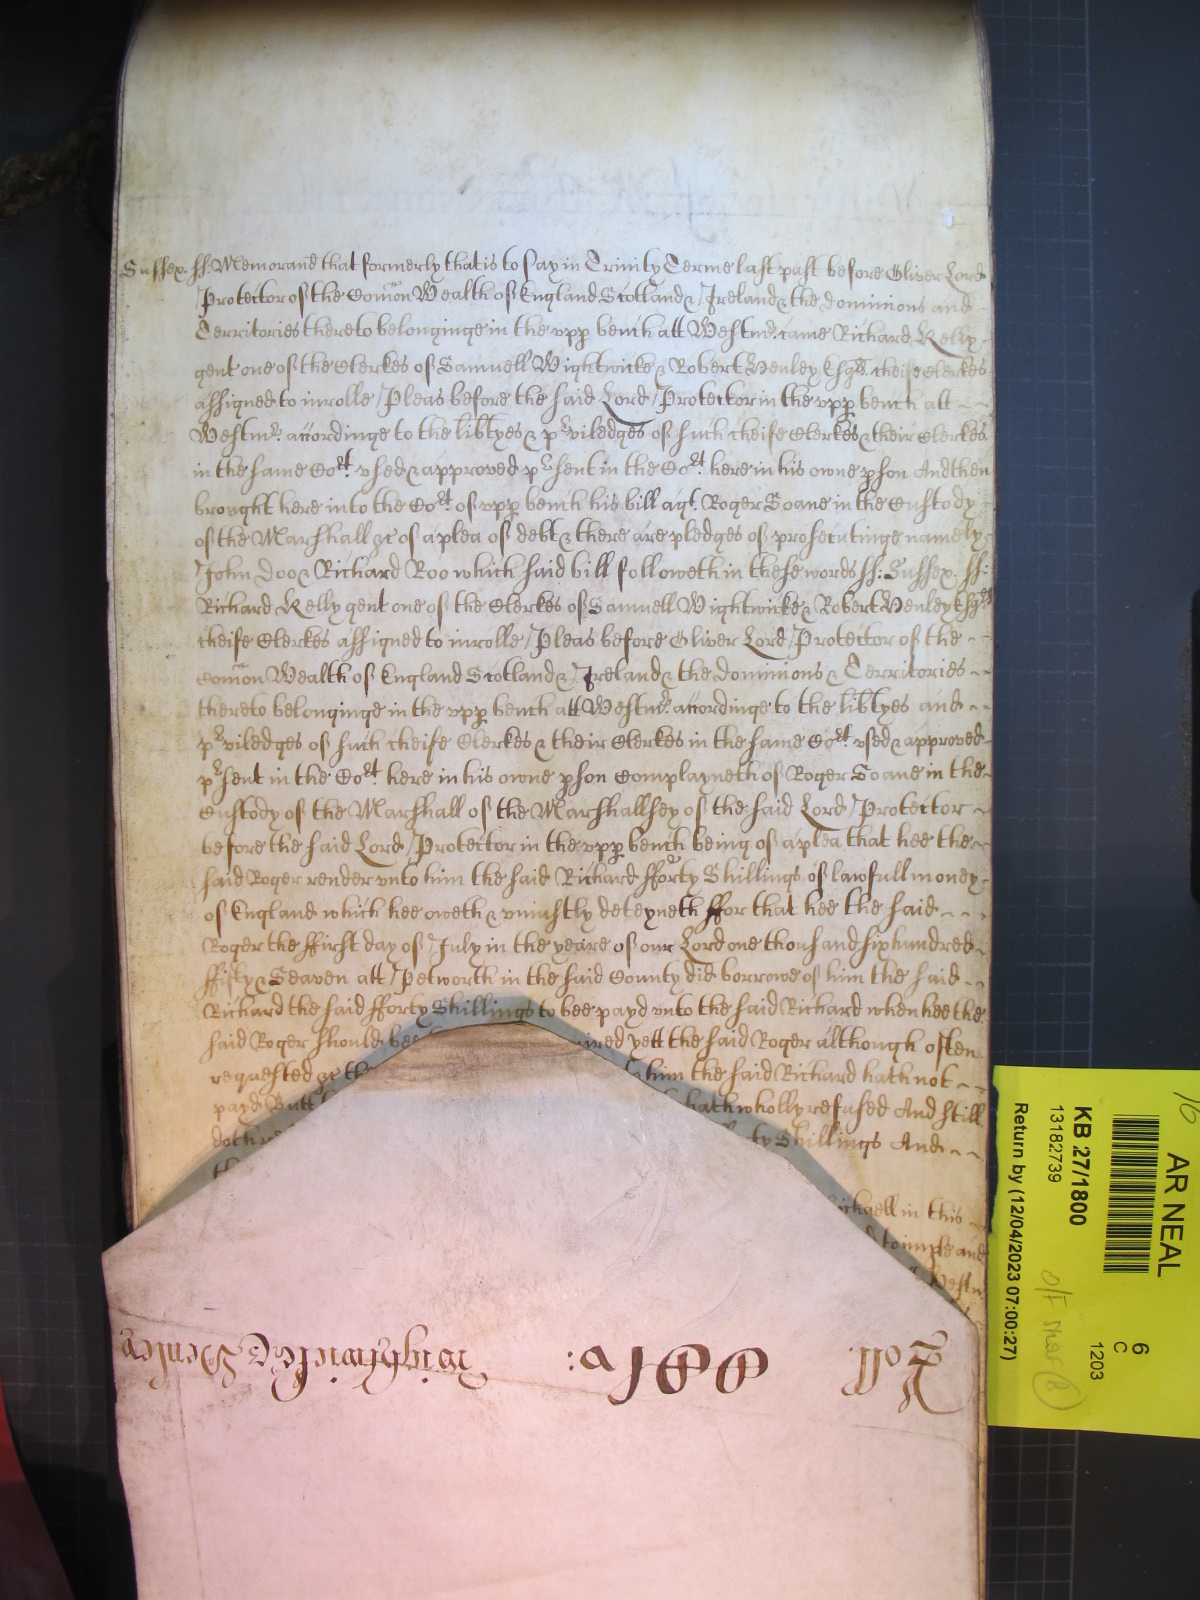 Sussex. ss: Memorand that formerly that is to say in Trinity Terme last past before Oliver Lord
Protector of the Comon Wealth of England Scotland & Ireland & the dominions and
Territories thereto belonginge in the upp bench att Westmr. came Richard Kelly
gent one of the Clerkes of Samuell Wightwicke & Robert Henley Esqrs. cheife Clerkes
assigned to inrolle Pleas before the said Lord Protector in the upp bench att
Westmr. accordinge to the libtyes & prviledges of such cheife Clerkes & their Clerkes
in the same Cort. vsed & approved prsent in the Cort. here in his owne pson And then
brought here into the Cort. of vpp bench his bill agt. Roger Soane in the Custody
of the Marshall &c of a plea of debt & there are pledges of prosecutinge namely
John Doo & Richard Roo which said bill followeth in these words ss: Sussex. ss:
Richard Kelly gent one of the Clerkes of Samuell Wightwicke & Robert Henley Esqrs
cheife Clerkes assigned to inrolle Pleas before Oliver Lord Protector of the
Comon Wealth of England Scotland & Ireland & the dominions & Territories
thereto belonginge in the vpp bench att Westmr. accordinge to the libtyes and
prviledges of such cheife Clerkes & their Clerkes in the same Cort. vsed & approved
prsent in the Cort. here in his owne pson Complayneth of Roger Soane in the
Custody of the Marshall of the Marshallsey of the said Lord Protector
before the said Lord Protector in the vpp bench being of a plea that hee the
said Roger render vnto him the said Richard fforty Shillings of lawfull money
of England which hee oweth & vniustly deteyneth ffor that hee the said
Roger the ffirst day of July in the yeare of our Lord one thousand six hundred
ffifty & Seaven att Petworth in the said County did borrowe of him the said
Richard the said fforty Shillings to bee payd vnto the said Richard when hee the
said Roger should bee yett the said Roger although often
requested &c him the said Richard hath not
payd Butt hath wholly refused And still
doth Shillings And
in this
and
Westmr
Roll
Wightwicke & Henley
AR NEAL
6
C
1203
KB 27/1800
13182739
Return by (12/04/2023 07:00:27)